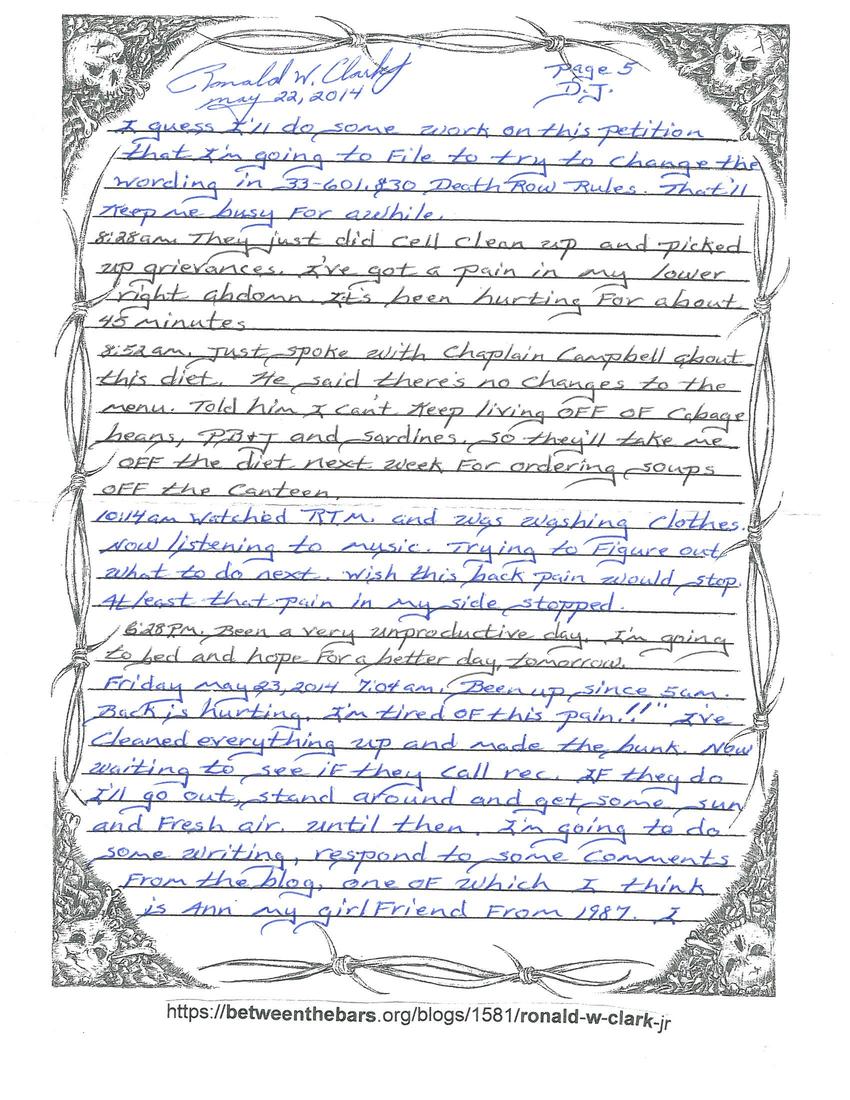 Ronald W. Clark Jr
Page 5
May 22, 2014
D.J.
I guess I'll do some work on this petition
that I'm going to File to try to change the
wording in 33-601.830 Death Row Rules. That'll
Keep me busy For awhile.
8:28am. They just did cell clean up and picked
up grievances. I've got a pain in my lower
right abdomn. It's been hurting For about
45 minutes
8:52am. Just spoke with Chaplain Campbell about
this diet. He said there's no changes to the
menu. Told him I can't Keep living OFF OF Cabage
beans, P.B.+J and sardines. So they'll take me
OFF the diet next week For ordering soups
OFF the Canteen.
10:14am Watched R.T.M. and was washing Clothes.
Now listening to music. Trying to Figure out
what to do next. Wish this back pain would stop.
At least that pain in my side stopped.
6:28PM. Been a very unproductive day. I'm going
to bed and hope For a better day, tomorrow.
Friday May 23, 2014 7:04am. Been up since 5am.
Back is hurting. I'm tired OF this pain.!!" I've
Cleaned everything up and made the bunk. Now
waiting to see iF they call rec. IF they do
I'll go out, stand around and get some sun
and Fresh air. Until then. I'm going to do
some writing, respond to some Comments
From the blog, one OF which I think
is Ann my girlFriend From 1987. I
https://betweenthebars.org/blogs/1581/ronald-w-clark-jr